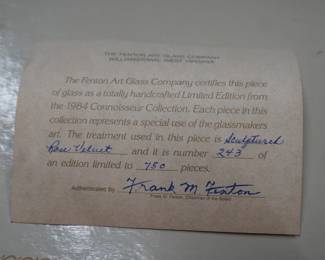 THE FENTON ART GLASS COMPANY
WILLIAMSTOWN, WEST VIRGINIA
The Fenton Art Glass Company certifies this piece
of glass as a totally handcrafted Limited Edition from
the 1984 Connoisseur Collection. Each piece in this
collection represents a special use of the glassmakers
art. The treatment used in this piece is Sculptured
Rose Velvet and it is number 243 of
an edition limited to 750 pieces.
Authenticated by Frank M. Fenton
Frank M. Fenton, Chairman of the Board